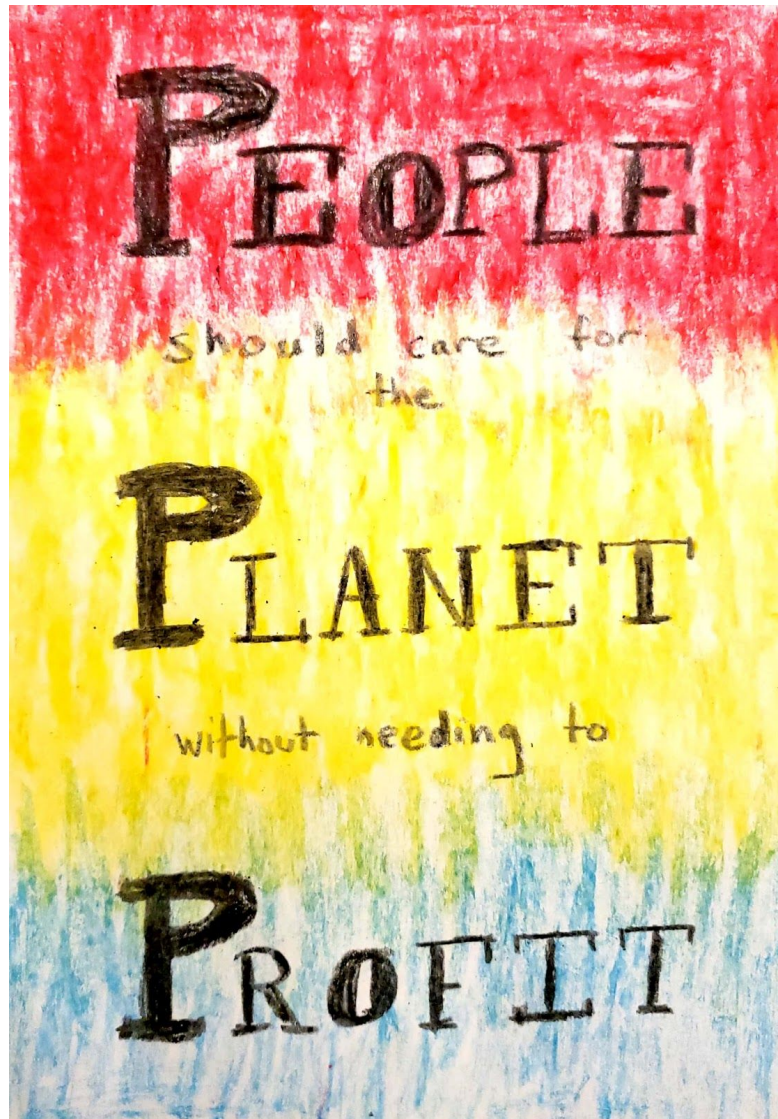 PEOPLE
should care for
the
PLANET
without needing to
PROFIT